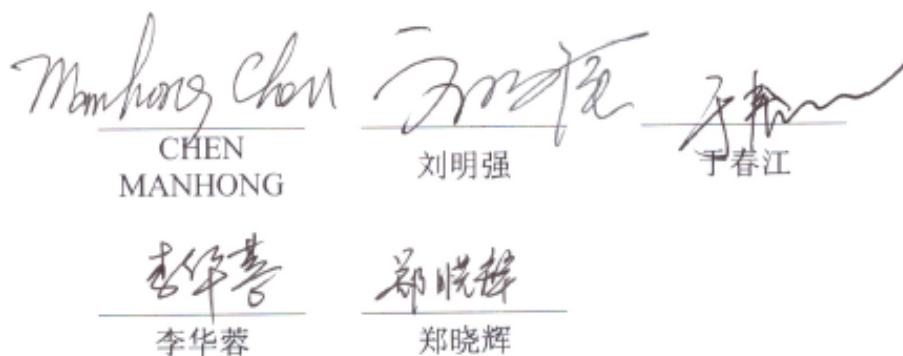 Manhong Chen
CHEN
MANHONG
刘明强
刘明强
于春江
于春江
李华蓉
李华蓉
郑晓辉
郑晓辉